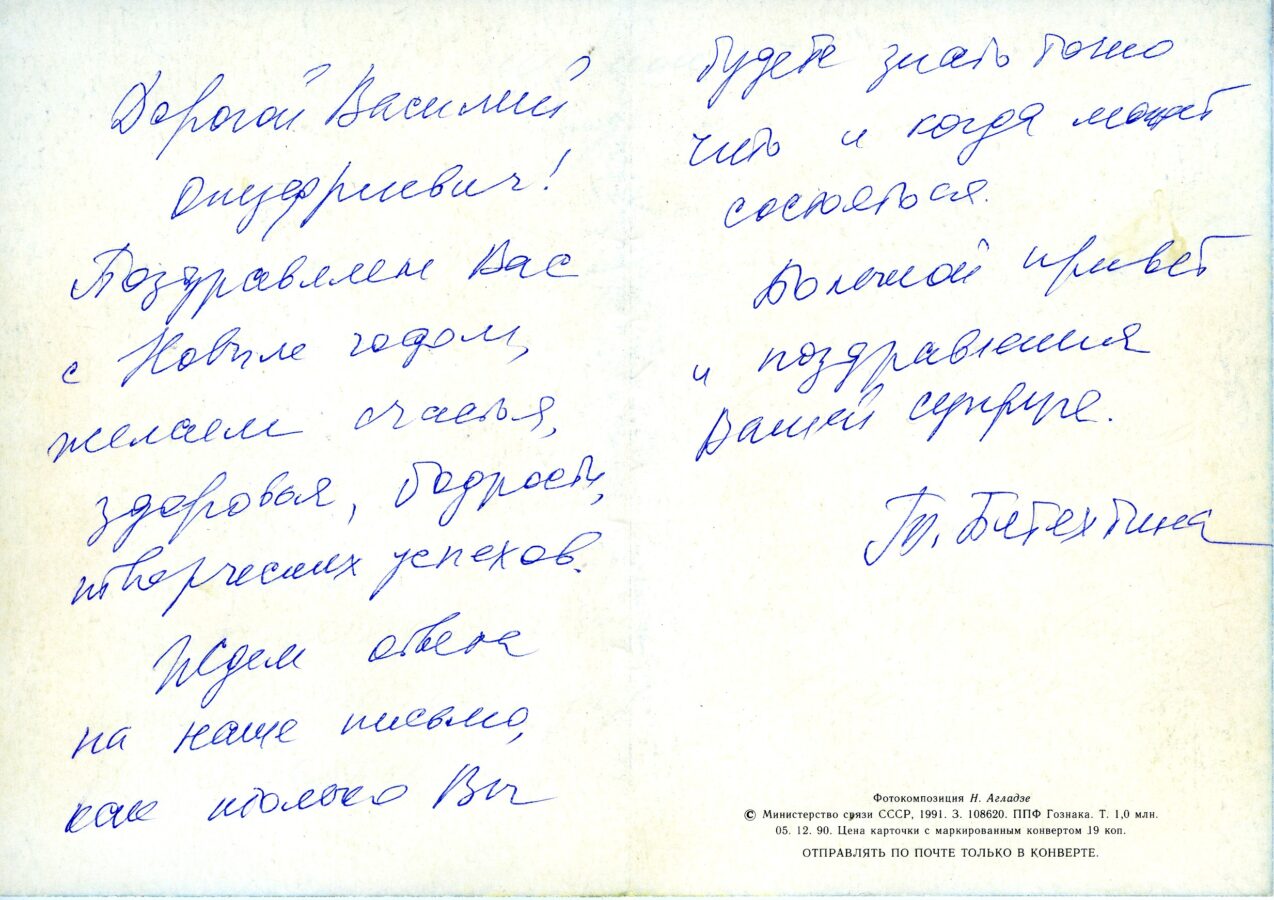 Дорогой Василий
Онуфриевич!
Поздравляем Вас
с Новым годом,
желаем счастья,
здоровья, бодрости,
творческих успехов.
Ждем ответа
на наше письмо,
как только Вы
будете знать точно
что и когда может
состояться.
Большой привет
и поздравления
Вашей супруге.
Т. Батехтина
Фотокомпозиция Н. Агладзе
© Министерство связи СССР, 1991. З. 108620. ППФ Гознака. Т. 1,0 млн.
05. 12. 90. Цена карточки с маркированным конвертом 19 коп.
ОТПРАВЛЯТЬ ПО ПОЧТЕ ТОЛЬКО В КОНВЕРТЕ.